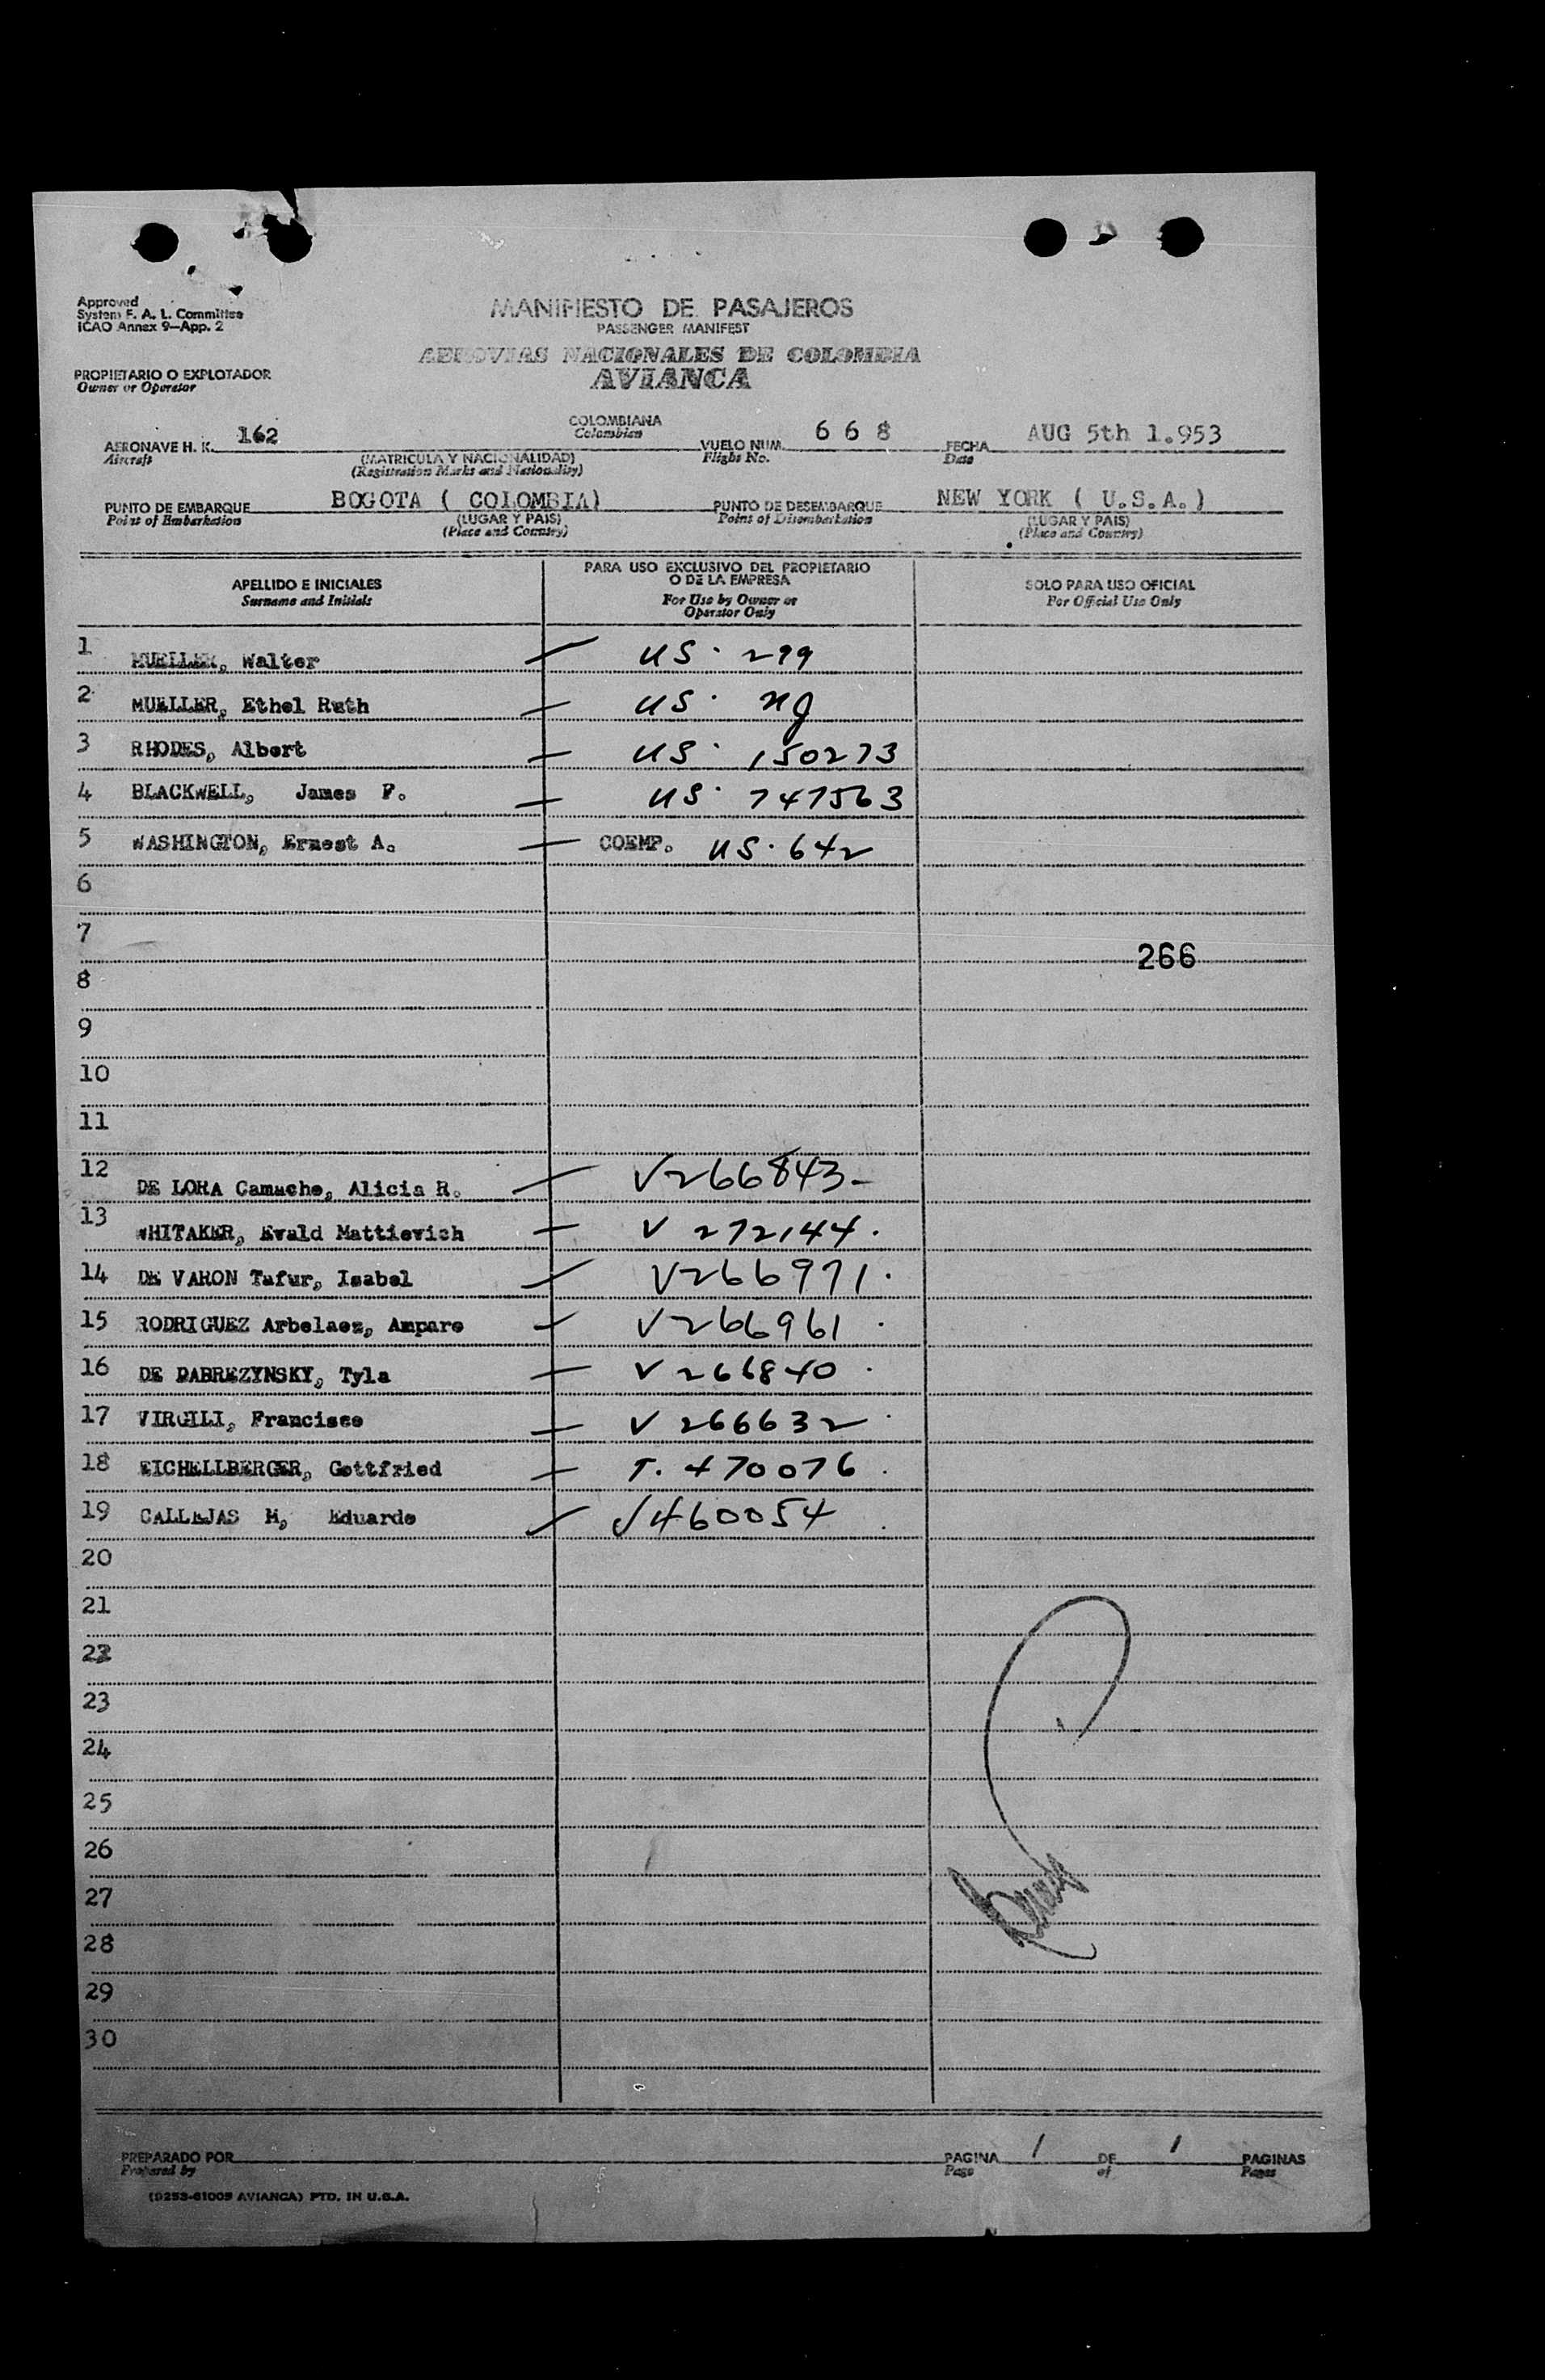 Approved
System F. A. L. Committee
ICAO Annex 9—App. 2
MANIFIESTO DE PASAJEROS
PASSENGER MANIFEST
AEROVIAS NACIONALES DE COLOMBIA
AVIANCA
PROPIETARIO O EXPLOTADOR
Owner or Operator
AERONAVE H. K. 162 COLOMBIANA VUELO NUM. 668 FECHA AUG 5th 1.953
Aircraft Colombian Flight No. Date
(MATRICULA Y NACIONALIDAD)
(Registration Marks and Nationality)
PUNTO DE EMBARQUE BOGOTA ( COLOMBIA) PUNTO DE DESEMBARQUE NEW YORK ( U.S.A.)
Point of Embarkation (LUGAR Y PAIS) Point of Disembarkation (LUGAR Y PAIS)
(Place and Country) (Place and Country)
APELLIDO E INICIALES
Surname and Initials
PARA USO EXCLUSIVO DEL PROPIETARIO
O DE LA EMPRESA
For Use by Owner or
Operator Only
SOLO PARA USO OFICIAL
For Official Use Only
1 MUELLER, Walter — US. 299
2 MUELLER, Ethel Ruth — US.
3 RHODES, Albert — US. 150273
4 BLACKWELL, James F. — US. 747563
5 WASHINGTON, Ernest A. — COEMP. US. 642
6
7
266
8
9
10
11
12 DE LORA Camacho, Alicia R. — V266843-
13 WHITAKER, Evald Mattievich — V 272144.
14 DE VARON Tafur, Isabel — V266971.
15 RODRIGUEZ Arbelaez, Amparo — V266961.
16 DE DABREZYNSKY, Tyla — V 266840.
17 VIRGILI, Francisco — V 266632.
18 EICHELLBERGER, Gottfried — T. 470076.
19 CALLEJAS M, Eduardo — V460054.
20
21
22
23
24
25
26
27
28
29
30
PREPARADO POR PAGINA 1 DE 1 PAGINAS
Prepared by Page of Pages
(D253-61005 AVIANCA) PTD. IN U.S.A.